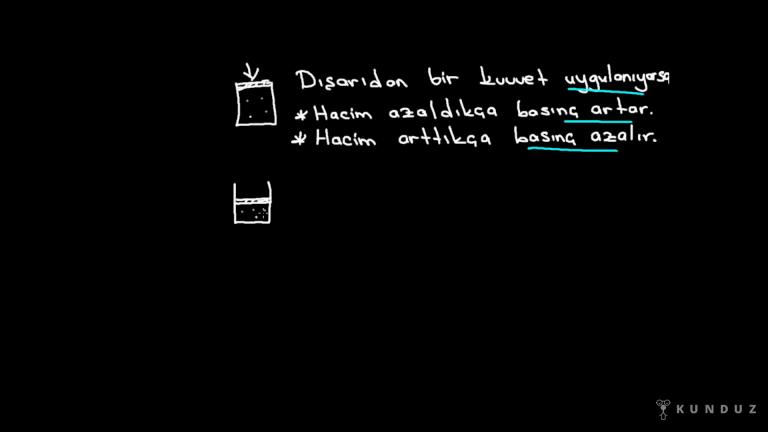 Dışarıdan bir kuvvet uygulanıyorsa
* Hacim azaldıkça basınç artar.
* Hacim arttıkça basınç azalır.
KUNDUZ